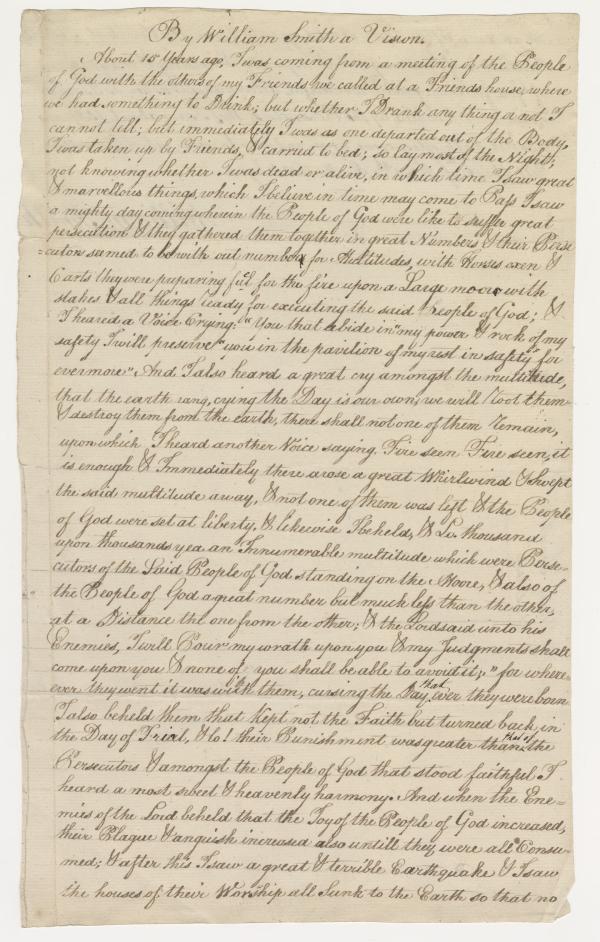 By William Smith a Vision.
About 15 Years ago, I was coming from a meiting of the People
of God with the others of my Friends we called at a Friends house, where
we had something to Drink; but whether I Drank any thing a not I
cannot tell; but immediately I was as one departed out of the Body,
I was taken up by Friends, & carried to bed; so lay most of the Night;
not knowing whether I was dead or alive, in which time I saw great
& marvellous things, which I believe in time may come to Pass I saw
a mighty day coming wherein the People of God were like to suffer great
persecution & they gathered them together in great Numbers & their Perse
=cutors semed to be with out number for Multitudes with Horses oxen &
Carts they were preparing fuel for the fire upon a Large moor with
stakes & all things ready for executing the said People of God; &
I heared a Voice Crying: "You that abide in "my power & rock of my
safety I will preserve "you in the pavilion of my rest in safty" for
evermore". And I also heard a great cry amongst the multitude,
that the earth rang, crying the Day is our own, we will root them
& destroy them from the earth, there shall not one of them remain,
upon which I heard another Voice saying. Fire seen Fire seen, it
is enough & Immediately there arose a great Whirlwind & swept
the said multitude away, & not one of them was left & the People
of God were set at liberty, & likewise I beheld, & Lo. thousand
upon thousands yea an Innumerable multitude which were Perse-
cutors of the Said People of God standing on the Moore, & also of
the People of God a great number but much less than the other,
at a Distance the one from the other; & the Lord said unto his
Enemies, I will Pour my wrath upon you & my Judgments shall
come upon you & none of you shall be able to avoid it;" for where-
ever they went it was with them, cursing the Day that ever they were born
I also beheld them that kept not the Faith but turned back in
the Day of Trial, & lo! their Punishment was greater than that of the
Persecutors & amongst the People of God that stood faithful I
heard a most sweet & heavenly harmony. And when the Ene=
mies of the Lord beheld that the Joy of the People of God increased,
their Plague & anguish increased also untill they were all Consu-
med; & after this I saw a great & terrible Earthquake & I saw
the houses of their Worship all Sunk to the Earth so that no